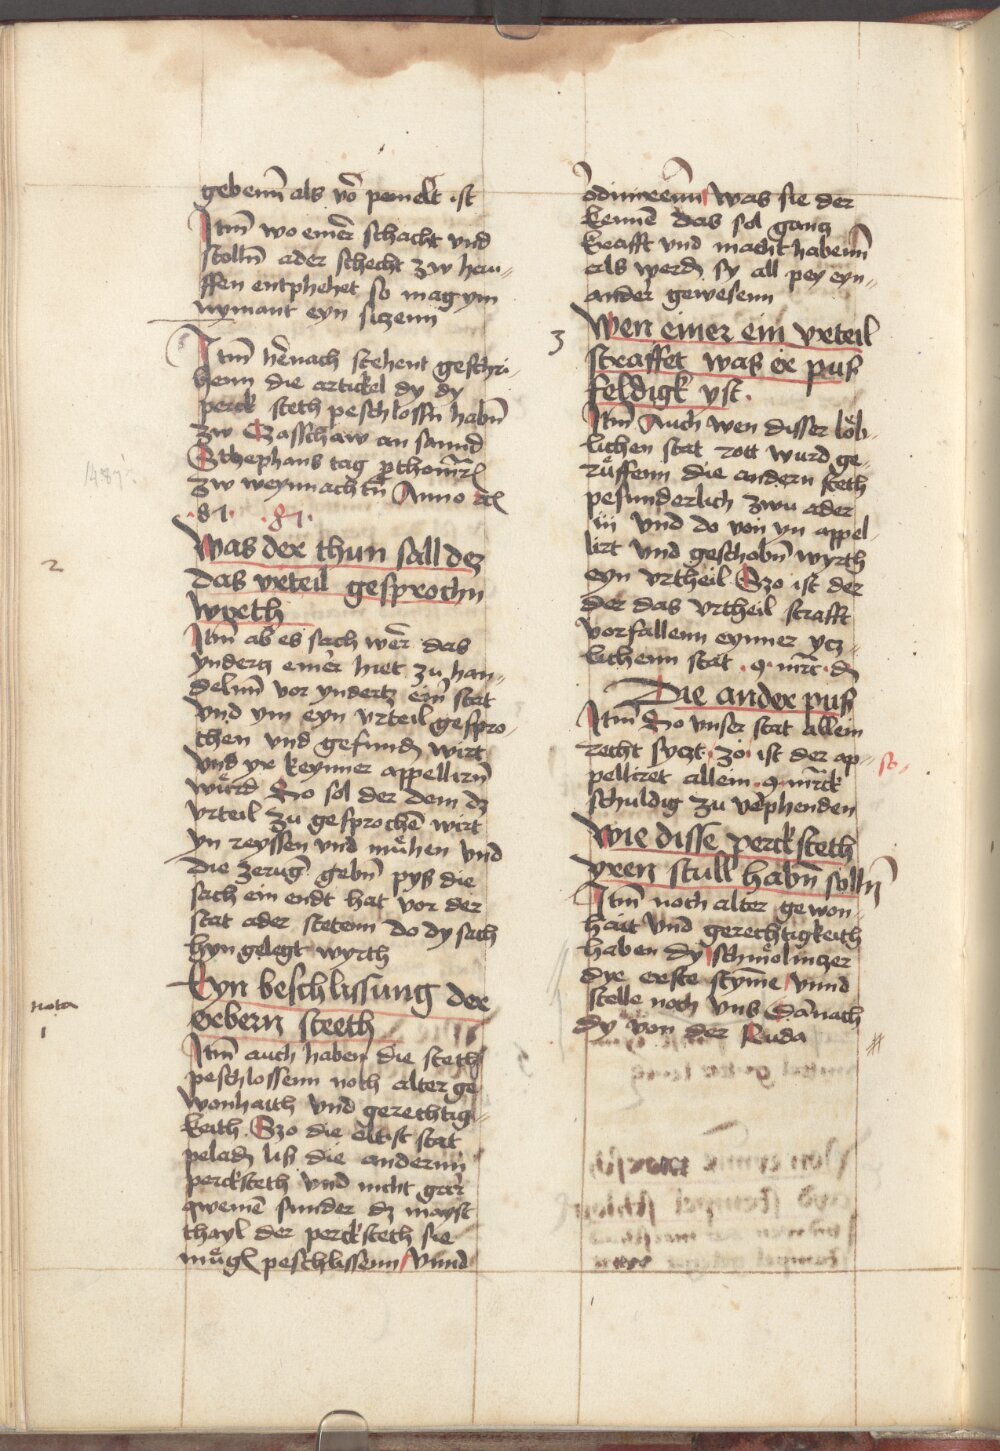 gebenn als vor pemelt ist
Itm wo einer schacht vnd
stolln ader schecht zw hau„
ffen entphehet so mag ym
nymant eyn sitzenn
Itm hernach stehent geschri„
benn die artickel dy dy
perck steth peschlossn habn
zw Casschaw an sannd
Sthephans tag
zw weynnachtn Anno
.87. .87.
Was der thun sall dez
das vrteil gesprochn
wirth
Itm ab es sach wer das
yndertz einer hiet zu han„
delnn vor yndertz ein stat
vnd vm eyn vrteil gespro„
chen vnd gefund wirt
vnd yr keynner appellirn
wurd So sol der dem dz
vrteil zu gesprochen wirt
yn reyssen vnd muhen vnd
die zerug gebn pys die
sach ein endt hat vor der
stat ader stetenn do dy sach
hyn gelegt wyrth
Eyn beschlissung der
obern steeth
nota
1
2
Itm auch haben die steth
peschlossenn noch alter ge
wonhaith vnd gerechtig„
keith Szo die eltist stat
pelad lis die andernn
percksteth vnd nicht gar
qwemen sunder dz mayst
thayl der percksteth sie
mugn peschlissenn vnnd
was sie der
kennen das sol gantz
krafft vnd macht habenn
als werd sy all pey eyn„
ander gewesenn
3
Wen einer ein vrteil
straffet was er pus
feldigk yst.
Itm Auch wen disser lob„
lichen stat rott wurd ge„
ruffenn die andern steth
pesunderlich zwu ader
iii vnd do von yn appel„
lirt vnd geschobn wyrth
eyn vrtheil Szo ist der
der das vrtheil strafft
vorfallenn eynner ytz„
lichenn stat
Die ander pus
Itm So vnser stat allein
recht sytzt. zo ist der ap„
so„
pelliret allein .9. marck
schuldig zu verphenden
Wie disse percksteth
yren stull habn solln
Itm noch alter gewon„
hait vnd gerechtigkeith
haben dy schmolintzer
dye erste styme vnnd
stelle noch vns Darnach
dy von der Ruda